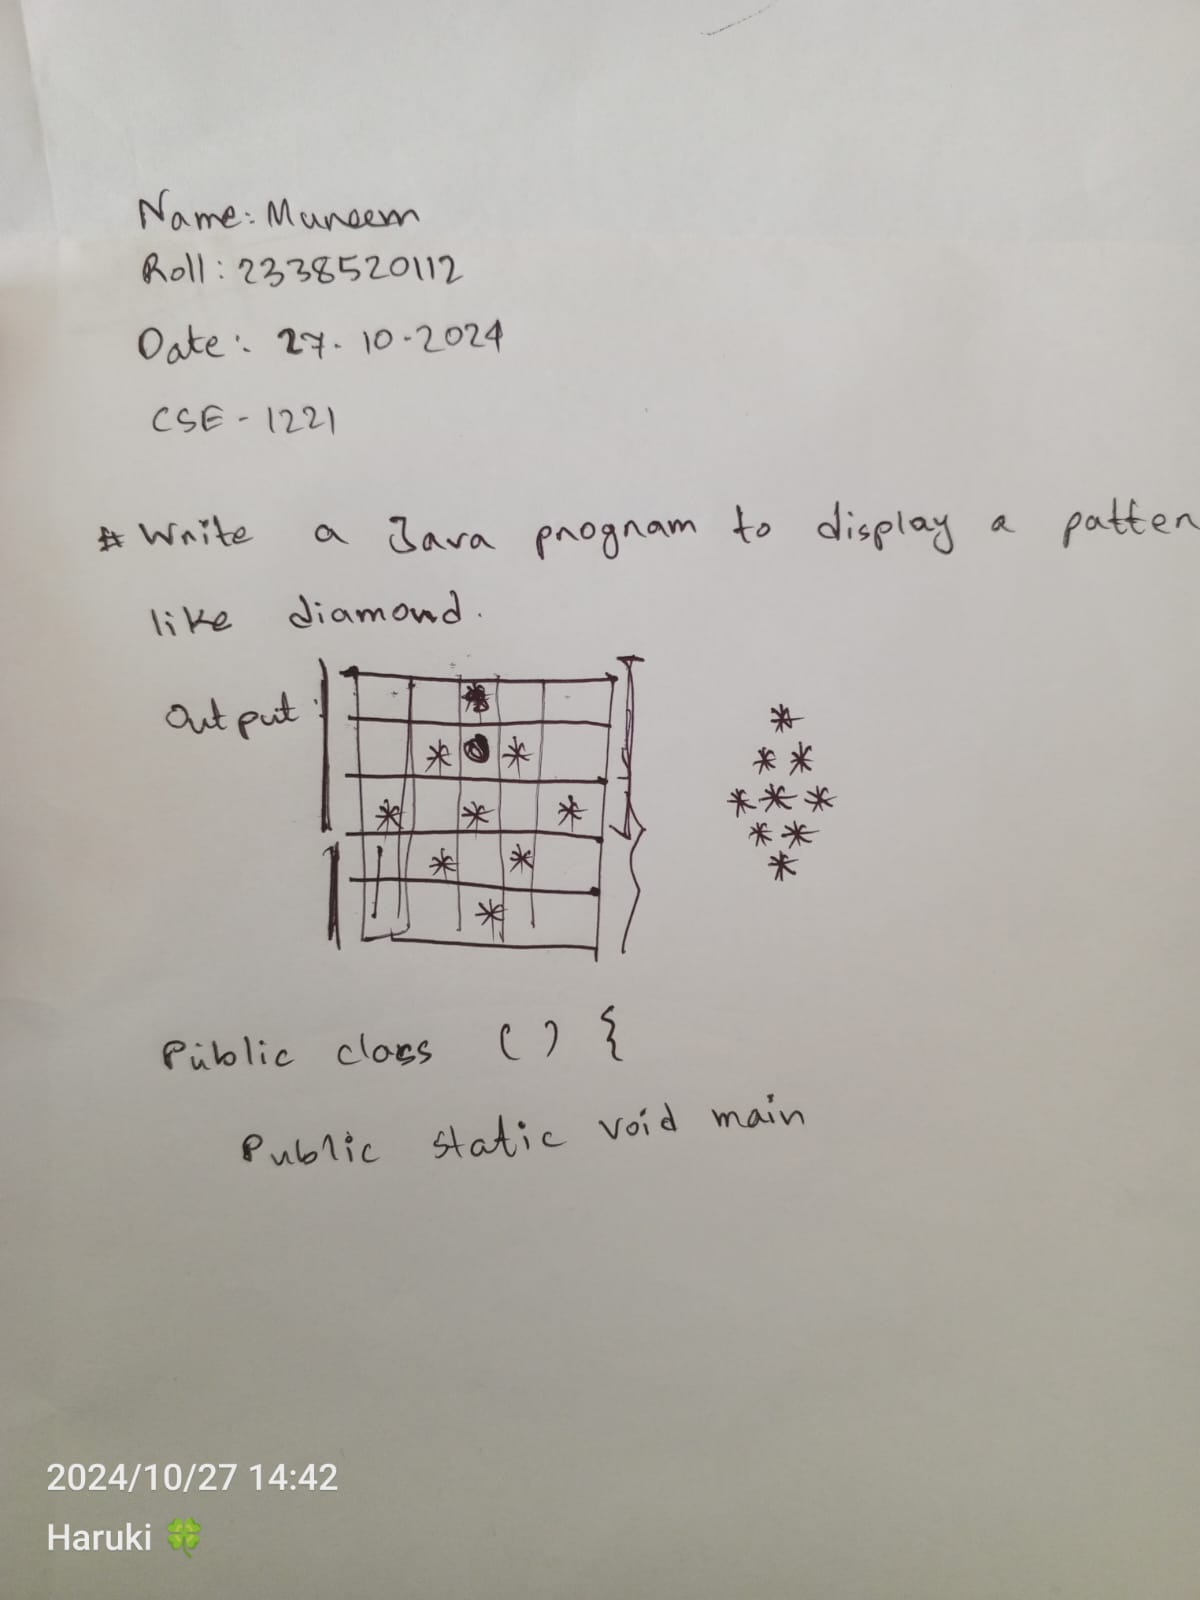 Name: Muneem
Roll: 2338520112
Date: 27.10.2024
CSE-1221
# Write a Java program to display a patten
like diamond.
Output:
*
* *
* * *
* *
*
*
* *
* * *
* *
*
Public class () {
Public static void main
2024/10/27 14:42
Haruki 🍀